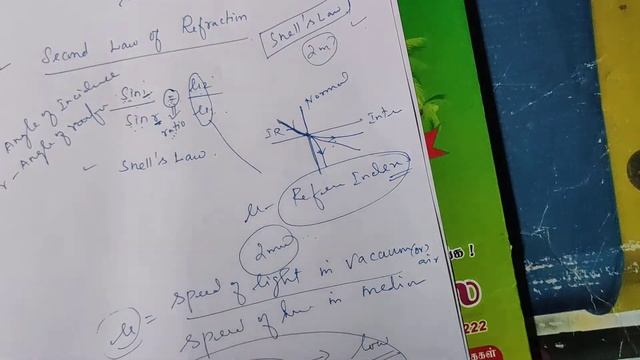 Second Law of Refraction
Snell's Law
2m
Angle of Incidence
Sin i = μ2
r - Angle of
Sin r μ1
ratio
Snell's Law
Normal
IR
μ - Refra Index
2m
μ = Speed of light in Vacuum (or) air
Speed of in medium
low
222